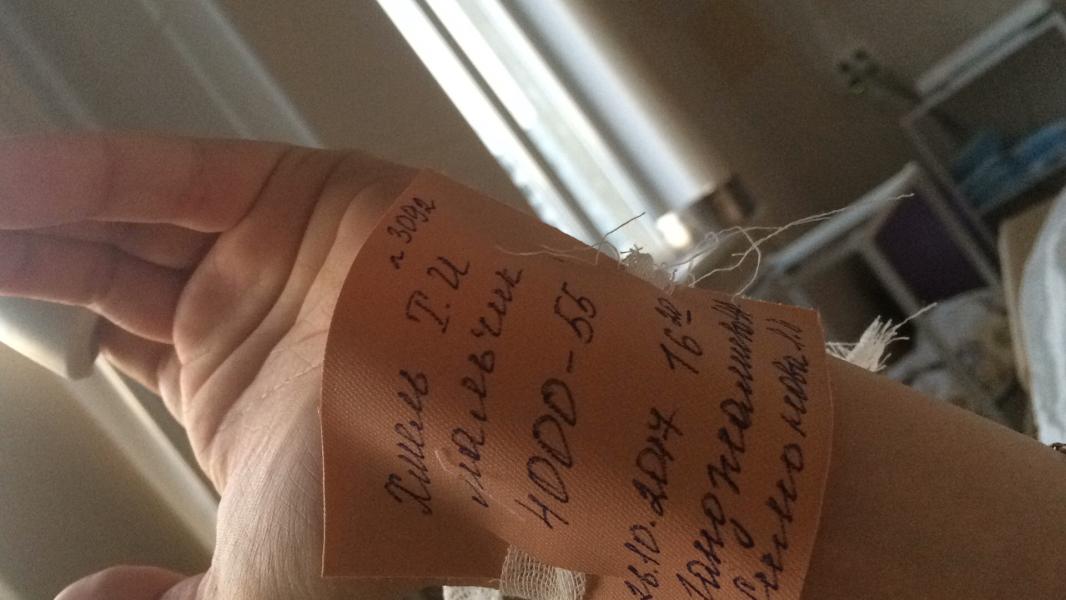 № 3092
Хмель Т. И
мальчик
4000-55
26.10.2017 16 20